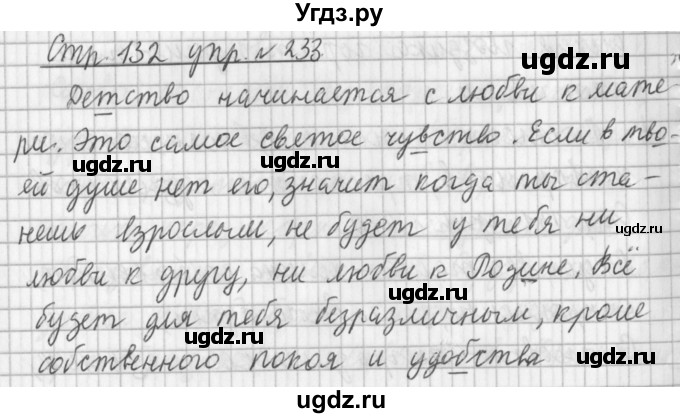 Угдз.ру
Стр. 132 упр. № 233
Детство начинается с любви к мате
ugdz.ru
ри. Это самое святое чувство. Если в тво-
ugdz.ru ugdz.ru
ей душе нет его, значит когда ты ста-
нешь взрослым, не будет у тебя ни
ugdz.ru
любви к другу, ни любви к Родине. Всё
ugdz.ru
будет для тебя безразличным, кроме
ugdz.ru
собственного покоя и удобства
ugdz.ru
ugdz.ru